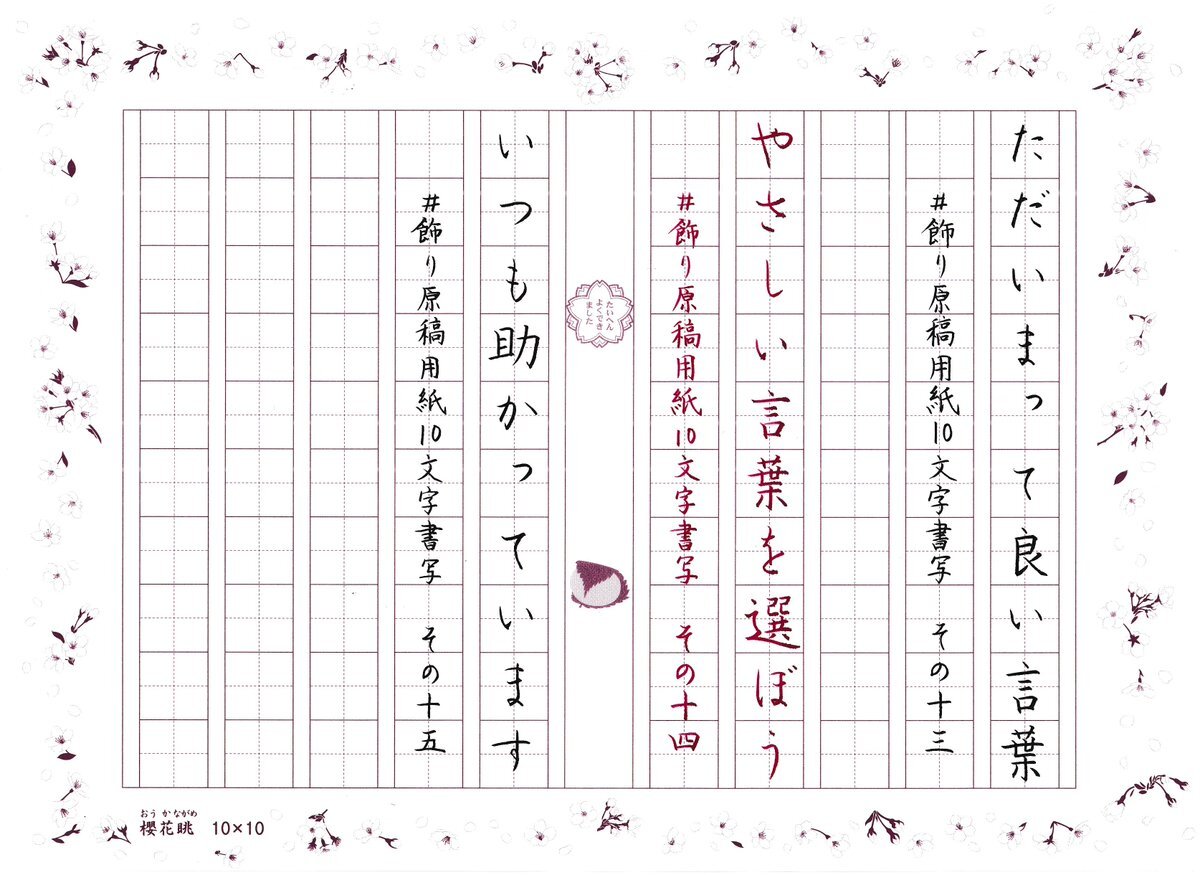 ただいまって良い言葉
#飾り原稿用紙10文字書写 その十三
やさしい言葉を選ぼう
#飾り原稿用紙10文字書写 その十四
たいへん
よくでき
ました
いつも助かっています
#飾り原稿用紙10文字書写 その十五
おうかながめ
櫻花眺 10×10